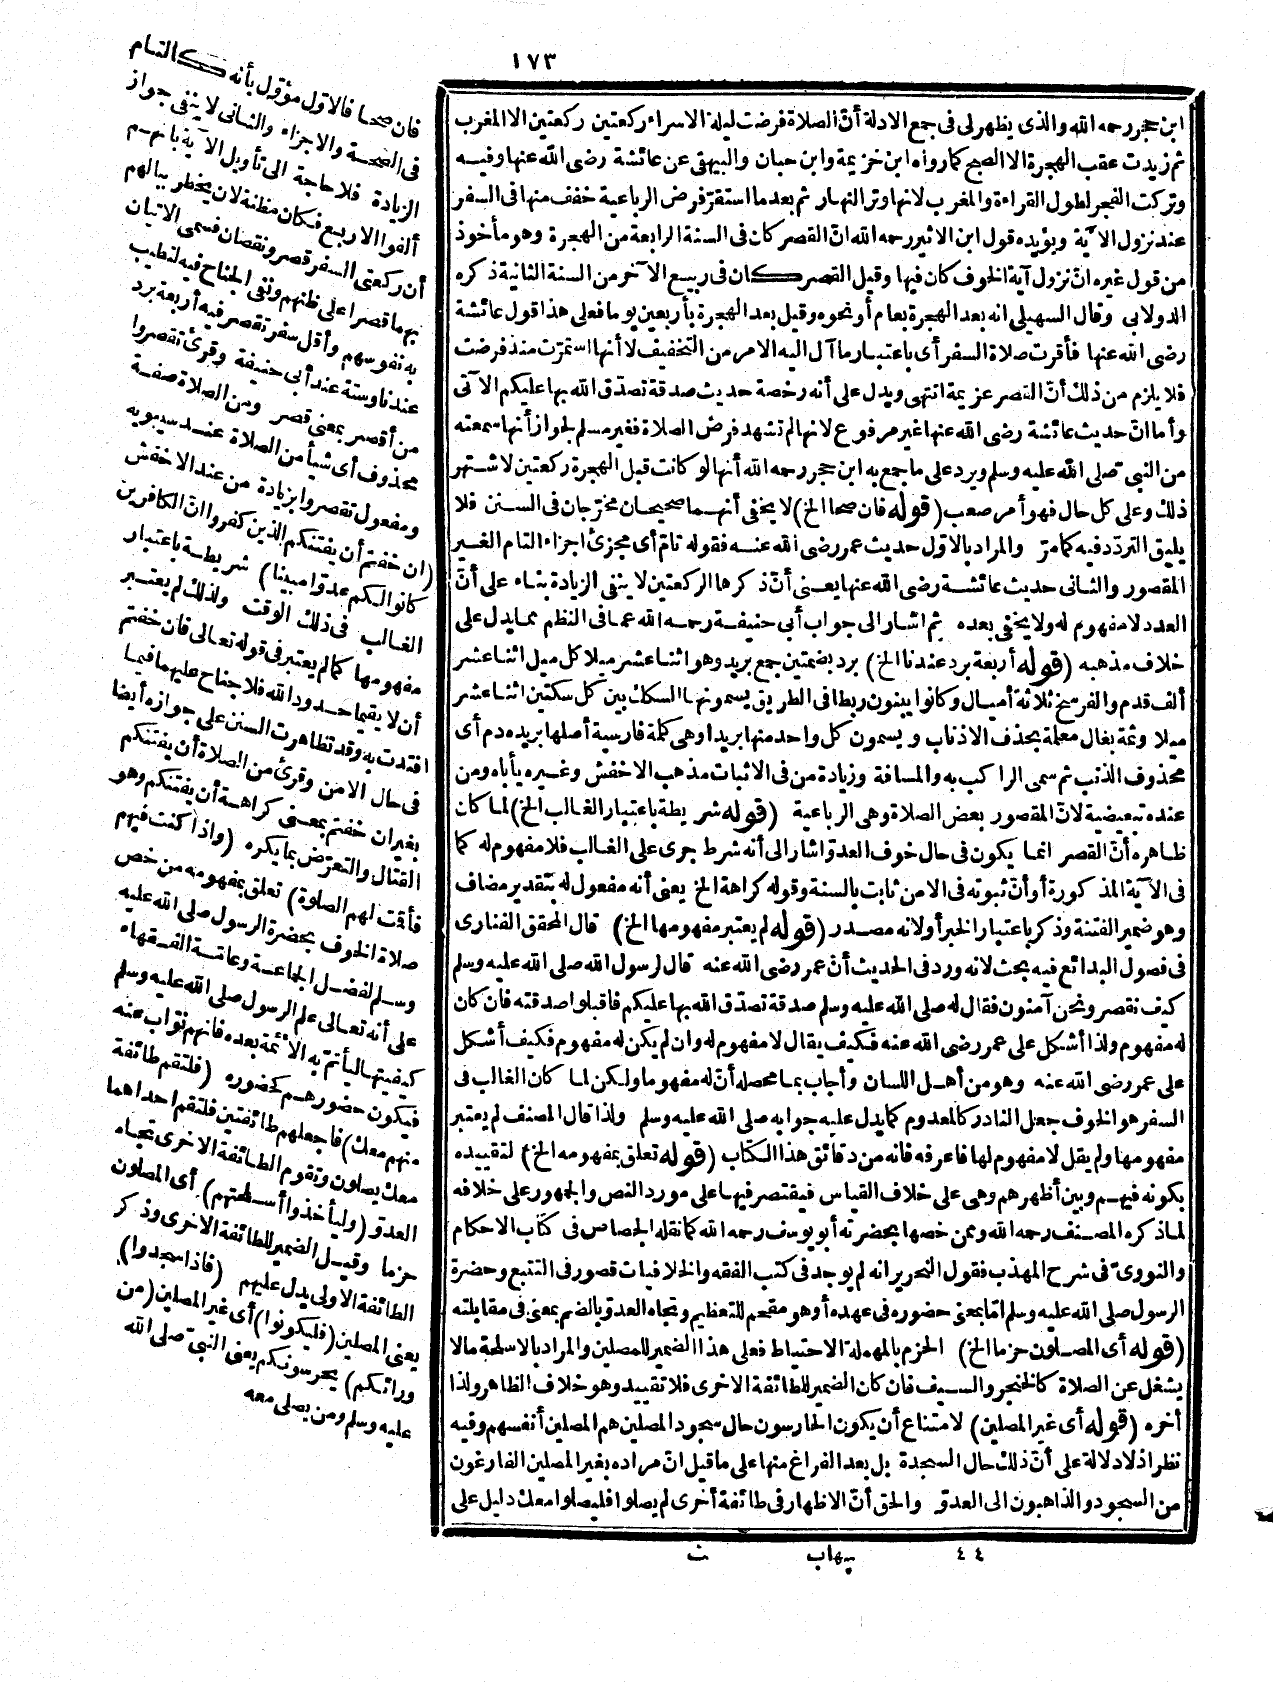 ١٧٣
ابن حجر رحمه الله والذى يظهر لى فى جمع الادلة أنّ الصلاة فرضت ليلة الاسراء ركعتين ركعتين الا المغرب
ثم زيدت عقب الهجرة الا الصبح كما رواه ابن خزيمة وابن حبان والبيهقى عن عائشة رضى الله عنها وفيه
وتركت الفجر لطول القراءة والمغرب لانها وتر النهار ثم بعد ما استقرّ فرض الرباعية خفف منها فى السفر
عند نزول الآية ويؤيده قول ابن الاثير رحمه الله انّ القصر كان فى السنة الرابعة من الهجرة وهو مأخوذ
من قول غيره انّ نزول آية الخوف كان فيها وقيل القصر كان فى ربيع الآخر من السنة الثانية ذكره
الدولابى وقال السهيلى انه بعد الهجرة بعام أو نحوه وقيل بعد الهجرة بأربعين يوما فعلى هذا قول عائشة
رضى الله عنها فأقرت صلاة السفر أى باعتبار ما آل اليه الامر من التخفيف لا أنها استمرّت منذ فرضت
فلا يلزم من ذلك أنّ القصر عزيمة انتهى ويدل على أنه رخصة حديث صدقة تصدّق الله بها عليكم الآتى
وأما انّ حديث عائشة رضى الله عنها غير مرفوع لانها لم تشهد فرض الصلاة فغير مسلم لجواز أنها سمعته
من النبى صلى الله عليه وسلم ويرد على ما جمع به ابن حجر رحمه الله أنها لو كانت قبل الهجرة ركعتين لاشتهر
ذلك وعلى كل حال فهو أمر صعب (قوله فان صحا الخ) لا يخفى أنهما صحيحان مخرّجان فى السنن فلا
يليق التردّد فيه كما مرّ والمراد بالاوّل حديث عمر رضى الله عنه فقوله تامّ أى مجزئ اجزاء التام الغير
المقصور والثانى حديث عائشة رضى الله عنها يعنى أنّ ذكرها الركعتين لا ينفى الزيادة بناء على أنّ
العدد لا مفهوم له ولا يخفى بعده ثم اشار الى جواب أبى حنيفة رحمه الله عما فى النظم مما يدل على
خلاف مذهبه (قوله أربعة برد عندنا الخ) برد بضمتين جمع بريد وهو اثنا عشر ميلا كل ميل اثنا عشر
ألف قدم والفرسخ ثلاثة أميال وكانوا يبنون ربطا فى الطريق يسمونها السكك بين كل سكتين اثنا عشر
ميلا وثمة بغال معلمة بحذف الاذناب ويسمون كل واحد منها بريدا وهى كلمة فارسية أصلها بريده دم أى
محذوف الذنب ثم سمى الراكب به والمسافة وزيادة من فى الاثبات مذهب الاخفش وغيره يأباه ومن
عنده تبعيضية لانّ المقصور بعض الصلاة وهى الرباعية (قوله شريطة باعتبار الغالب الخ) لما كان
ظاهره أنّ القصر انما يكون فى حال خوف العدوّ اشار الى أنه شرط جرى على الغالب فلا مفهوم له كما
فى الآية المذكورة أو أنّ ثبوته فى الامن ثابت بالسنة وقوله كراهة الخ يعنى أنه مفعول له بتقدير مضاف
وهو ضمير الفتنة وذكر باعتبار الخبر أو لانه مصدر (قوله لم يعتبر مفهومها الخ) قال المحقق الفنارى
فى فصول البدائع فيه بحث لانه ورد فى الحديث أنّ عمر رضى الله عنه قال لرسول الله صلى الله عليه وسلم
كيف نقصر ونحن آمنون فقال له صلى الله عليه وسلم صدقة تصدّق الله بها عليكم فاقبلوا صدقته فان كان
له مفهوم ولذا أشكل على عمر رضى الله عنه فكيف يقال لا مفهوم له وان لم يكن له مفهوم فكيف أشكل
على عمر رضى الله عنه وهو من أهل اللسان وأجاب بما محصله أنّ له مفهوما ولكن لما كان الغالب فى
السفر هو الخوف جعل النادر كالمعدوم كما يدل عليه جوابه صلى الله عليه وسلم ولذا قال المصنف لم يعتبر
مفهومها ولم يقل لا مفهوم لها فاعرفه فانه من دقائق هذا الكتاب (قوله تعلق بمفهومه الخ) لتقييده
بكونه فيهم وبين أظهرهم وهى على خلاف القياس فيقتصر فيها على مورد النص والجمهور على خلافه
لما ذكره المصنف رحمه الله وممن خصها بحضرته أبو يوسف رحمه الله كما نقله الجصاص فى كتاب الاحكام
والنووىّ فى شرح المهذب فقول النحرير انه لم يوجد فى كتب الفقه والخلافيات قصور فى التتبع وحضرة
الرسول صلى الله عليه وسلم امّا بمعنى حضوره فى عهده أو هو مقحم للتعظيم وتجاه العدوّ بالضم بمعنى فى مقابلته
(قوله أى المصلون حزما الخ) الحزم بالمهملة الاحتياط فعلى هذا الضمير للمصلين والمراد بالاسلحة ما لا
يشغل عن الصلاة كالخنجر والسيف فان كان الضمير للطائفة الاخرى فلا تقييد وهو خلاف الظاهر ولذا
أخره (قوله أى غير المصلين) لامتناع أن يكون الحارسون حال سجود المصلين هم المصلين أنفسهم وفيه
نظر اذ لا دلالة على أنّ ذلك حال السجدة بل بعد الفراغ منها على ما قيل انّ مراده بغير المصلين الفارغون
من السجود والذاهبون الى العدوّ والحق أنّ الاظهار فى طائفة أخرى لم يصلوا فليصلوا معك دليل على
فان صحا فالاوّل مؤوّل بأنه كالتام
فى الصحة والاجزاء والثانى لا ينفى جواز
الزيادة فلا حاجة الى تأويل الآية بانهم
ألفوا الاربع فكان مظنة لان يخطر ببالهم
أن ركعتى السفر قصر ونقصان فسمى الاتيان
بهما قصرا على ظنهم ونفى الجناح فيه لتطيب
به نفوسهم وأقل سفر تقصر فيه أربعة برد
عندنا وستة عند أبى حنيفة وقرئ تقصروا
من أقصر بمعنى قصر ومن الصلاة صفة
محذوف أى شيأ من الصلاة عند سيبويه
ومفعول تقصروا بزيادة من عند الاخفش
(ان خفتم أن يفتنكم الذين كفروا انّ الكافرين
كانوا لكم عدوّا مبينا) شريطة باعتبار
الغالب فى ذلك الوقت ولذلك لم يعتبر
مفهومها كما لم يعتبر فى قوله تعالى فان خفتم
أن لا يقيما حدود الله فلا جناح عليهما فيما
افتدت به وقد تظاهرت السنن على جوازه أيضا
فى حال الامن وقرئ من الصلاة أن يفتنكم
بغير ان خفتم بمعنى كراهة أن يفتنكم وهو
القتال والتعرّض بما يكره (واذا كنت فيهم
فأقت لهم الصلوة) تعلق بمفهومه من خص
صلاة الخوف بحضرة الرسول صلى الله عليه
وسلم لفضل الجماعة وعامّة الفقهاء
على أنه تعالى علم الرسول صلى الله عليه وسلم
كيفيتها ليأتمّ به الأئمة بعده فانهم نوّاب عنه
فيكون حضورهم كحضوره (فلتقم طائفة
منهم معك) فاجعلهم طائفتين فلتقم احداهما
معك يصلون وتقوم الطائفة الاخرى تجاه
العدوّ (وليأخذوا أسلحتهم) أى المصلون
حزما وقيل الضمير للطائفة الاخرى وذكر
الطائفة الاولى يدل عليهم (فاذا سجدوا)
يعنى المصلين (فليكونوا) أى غير المصلين (من
ورائكم) يحرسونكم يعنى النبىّ صلى الله
عليه وسلم ومن يصلى معه
٤٤ شهاب ث